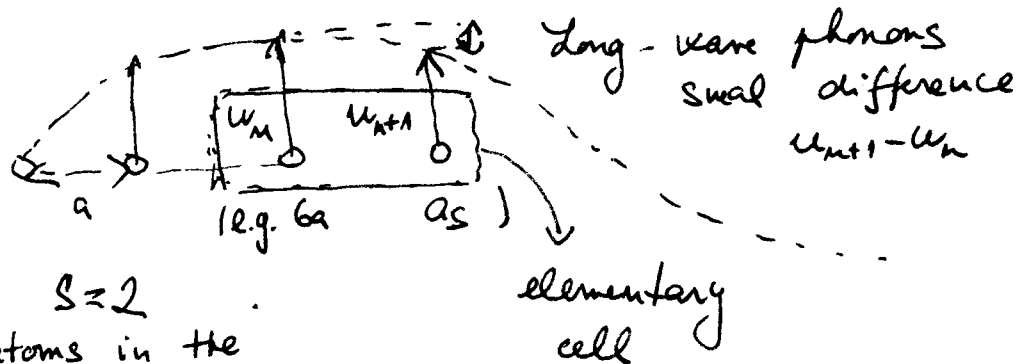 Long-wave phonons
smal difference
u_{n+1}-u_n
u_n u_{n+1}
a
(e.g. Ga As)
S=2
atoms in the
elementary
cell